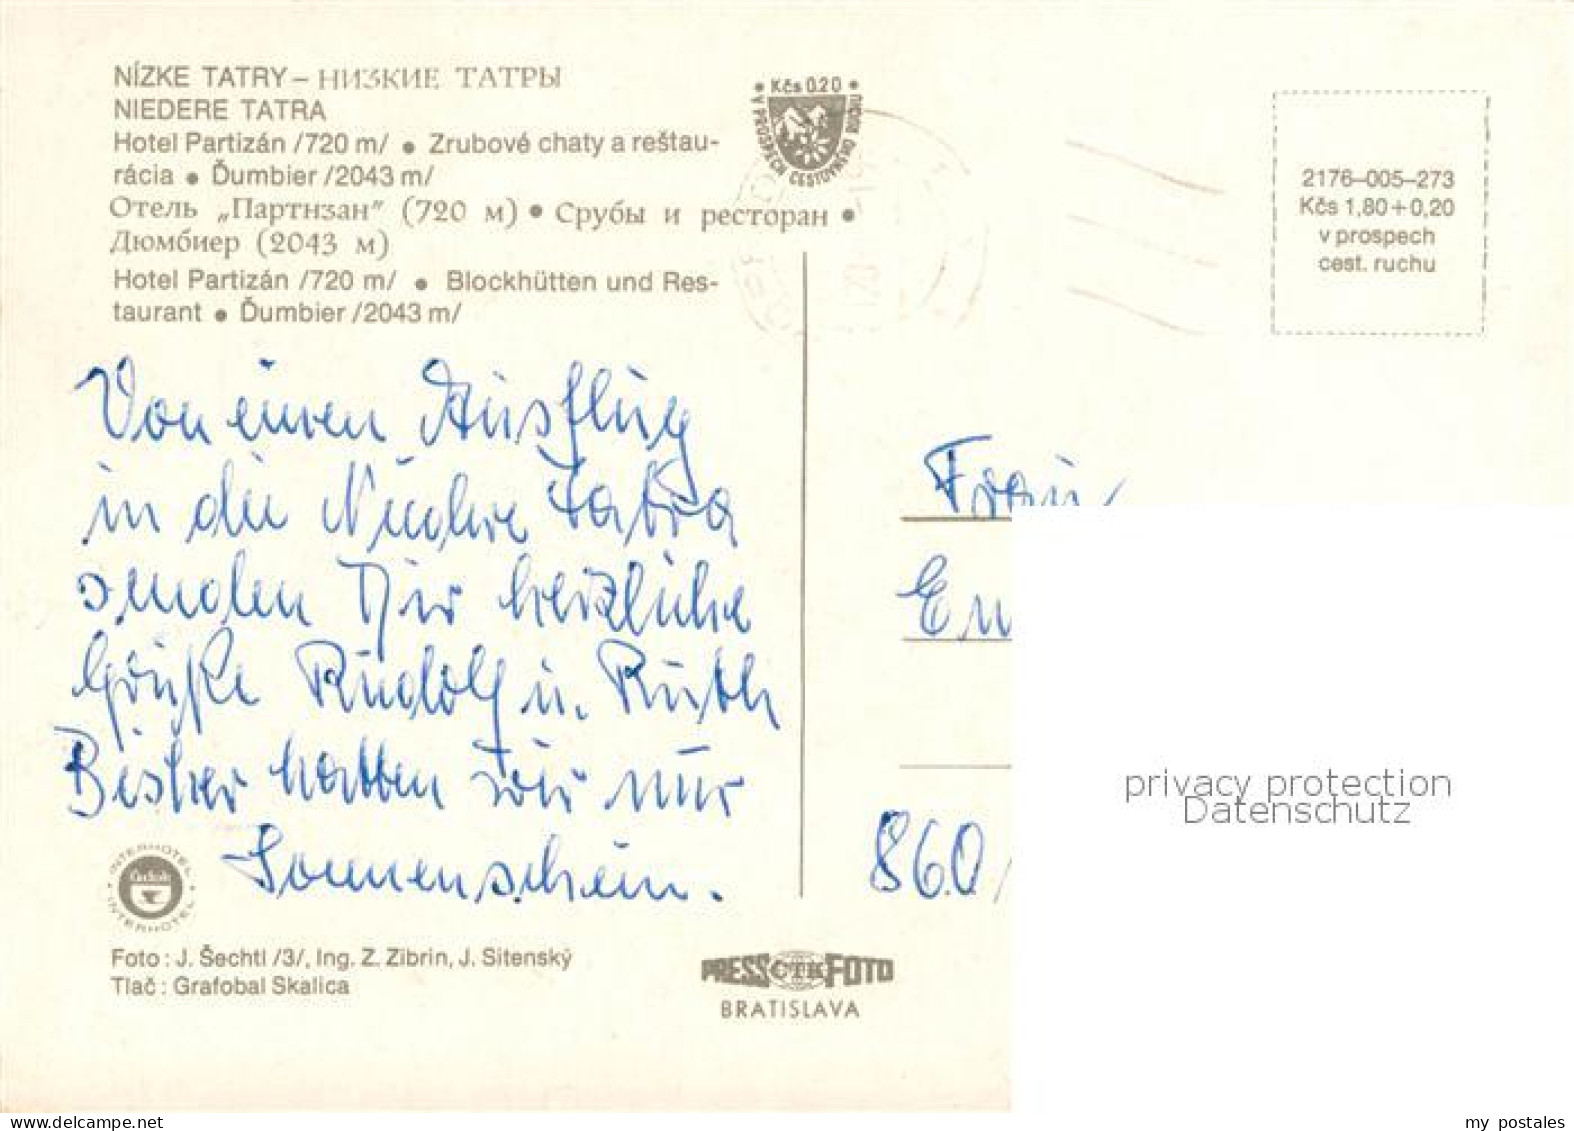 NÍZKE TATRY – НИЗКИЕ ТАТРЫ
NIEDERE TATRA
Hotel Partizán /720 m/ • Zrubové chaty a reštau-
rácia • Ďumbier /2043 m/
Отель „Партнзан" (720 м) • Срубы и ресторан •
Дюмбиер (2043 м)
Hotel Partizán /720 m/ • Blockhütten und Res-
taurant • Ďumbier /2043 m/
• Kčs 0.20 •
V PROSPECH CESTOVNÉHO RUCHU
2176–005–273
Kčs 1,80 + 0,20
v prospech
cest. ruchu
Von einen Ausflug
in die Niedere Tatra
senden Dir herzliche
Grüße Rudolf u. Ruth
Bisher hatten wir nur
Sonnenschein.
Frau
860
privacy protection
Datenschutz
• INTERHOTEL •
INTERHOTEL
Čedok
Foto : J. Šechtl /3/, Ing. Z. Zibrin, J. Sitenský
Tlač : Grafobal Skalica
PRESS ČTK FOTO
BRATISLAVA
www.delcampe.net
my postales